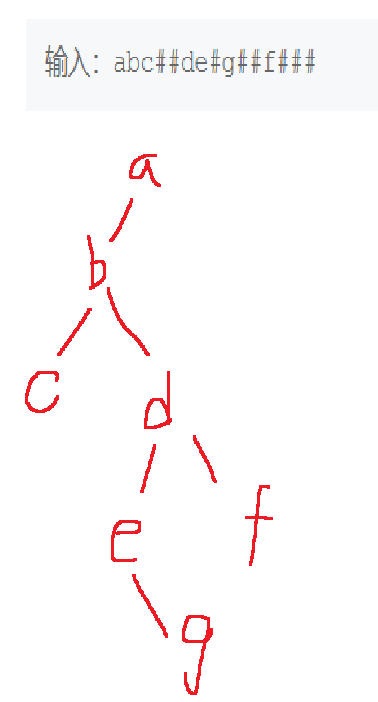 输入：abc##de#g##f###
a
b
c
d
e
f
g